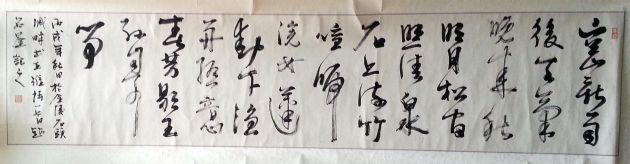 空山新雨
後天氣
晚來秋
明月松間
照清泉
石上流竹
喧歸
浣女蓮
動下漁
舟隨意
春芳歇王
孫自可
留
丙戌年秋日於金陵石頭
城畔书王維诗